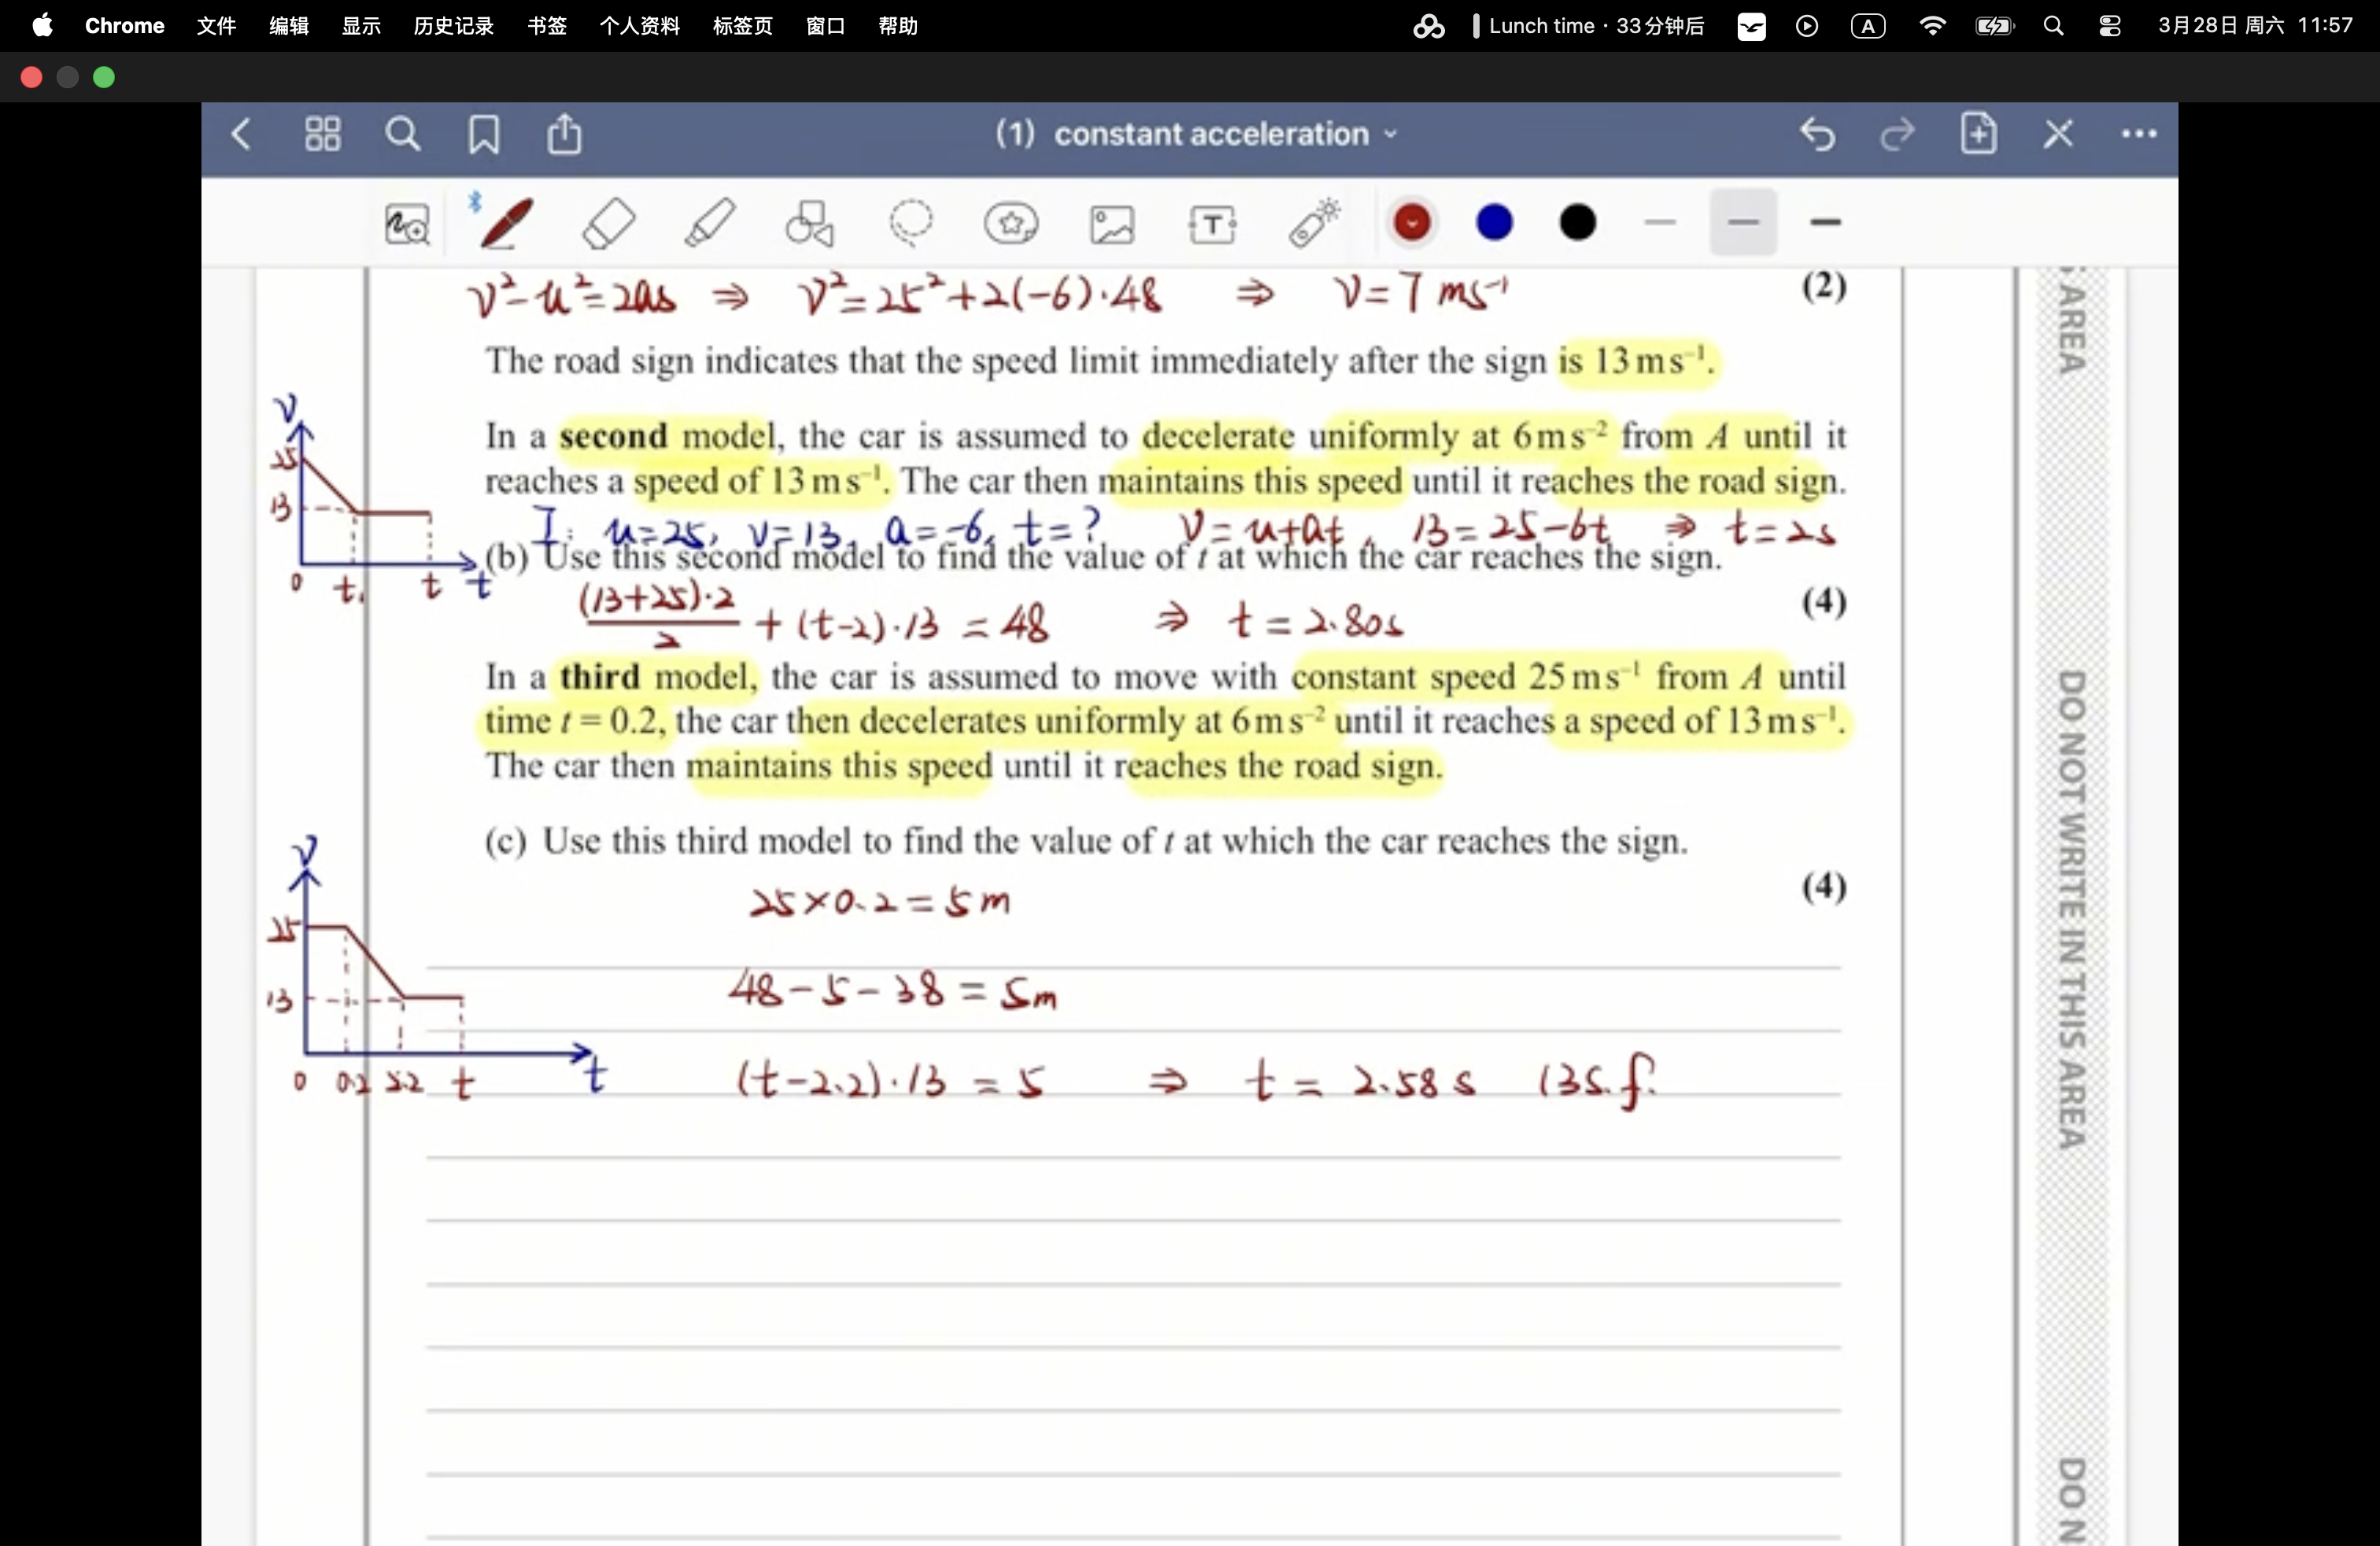 Chrome 文件 编辑 显示 历史记录 书签 个人资料 标签页 窗口 帮助 Lunch time · 33分钟后 A 3月28日 周六 11:57
(1) constant acceleration
T
v²-u²=2as ⇒ v²=25²+2(-6)·48 ⇒ v=7 ms⁻¹ (2)
The road sign indicates that the speed limit immediately after the sign is 13 m s⁻¹.
In a second model, the car is assumed to decelerate uniformly at 6 m s⁻² from A until it
reaches a speed of 13 m s⁻¹. The car then maintains this speed until it reaches the road sign.
v
25
13
0 t₁ t t
I: u=25, v=13, a=-6, t=? v=u+at, 13=25-6t ⇒ t=2s
(b) Use this second model to find the value of t at which the car reaches the sign.
(4)
(13+25)·2/2 + (t-2)·13 = 48 ⇒ t=2.80s
In a third model, the car is assumed to move with constant speed 25 m s⁻¹ from A until
time t = 0.2, the car then decelerates uniformly at 6 m s⁻² until it reaches a speed of 13 m s⁻¹.
The car then maintains this speed until it reaches the road sign.
(c) Use this third model to find the value of t at which the car reaches the sign.
(4)
v
25
13
0 0.2 2.2 t t
25×0.2=5m
48-5-38=5m
(t-2.2)·13=5 ⇒ t=2.58s (3s.f.
S AREA
DO NOT WRITE IN THIS AREA
DO N